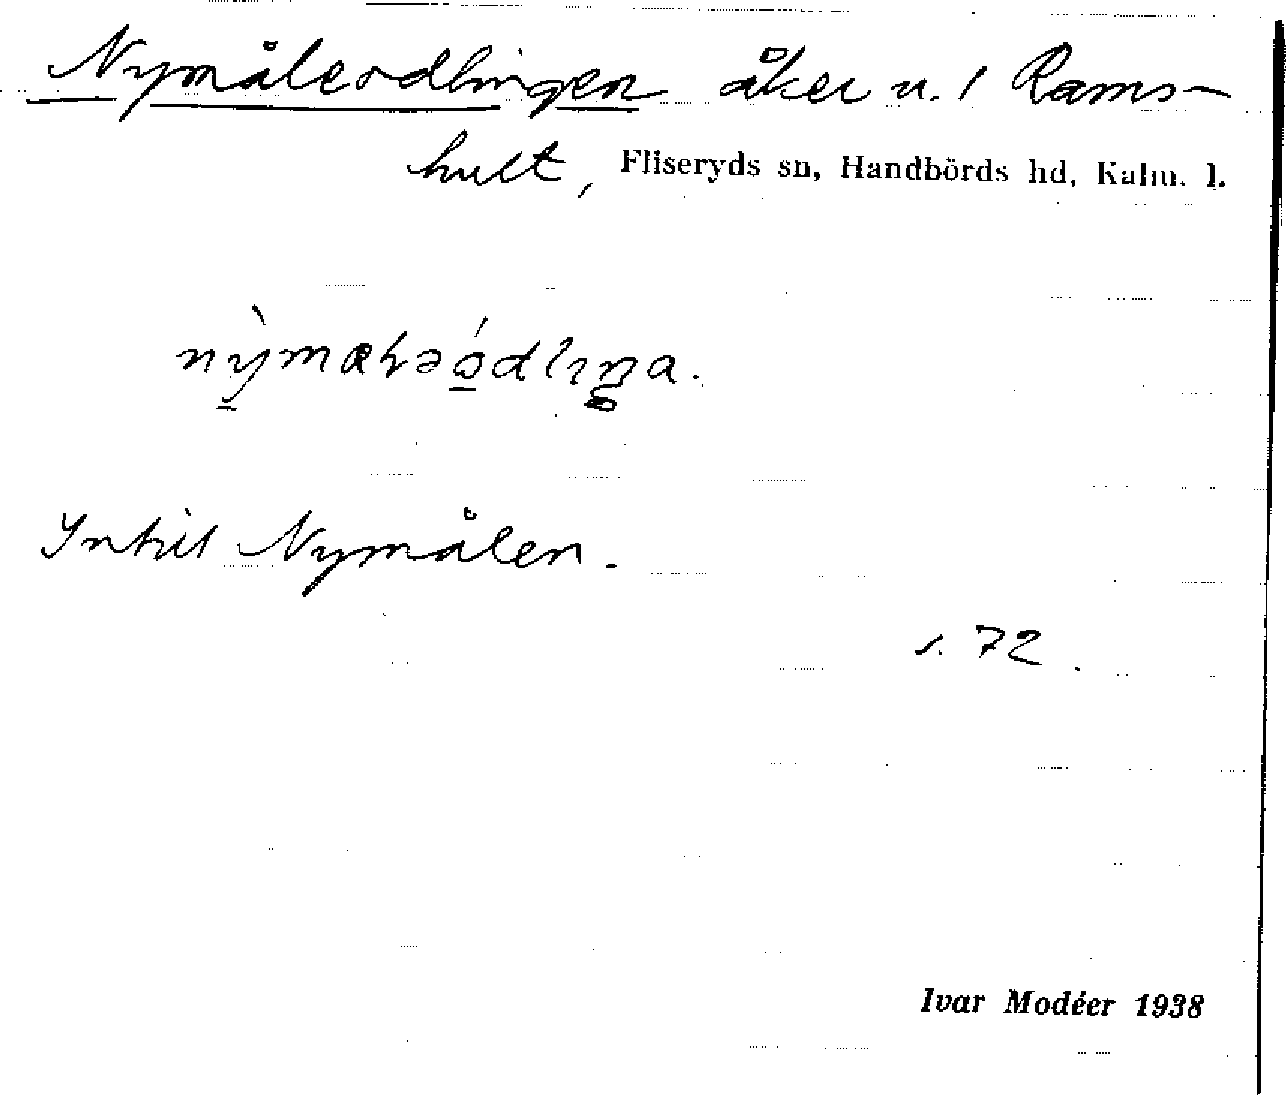 Nymåleodlingen åker u. 1 Rams-
hult, Fliseryds sn, Handbörds hd, Kalm. l.
Intill Nymålen.
s. 72.
Ivar Modéer 1938